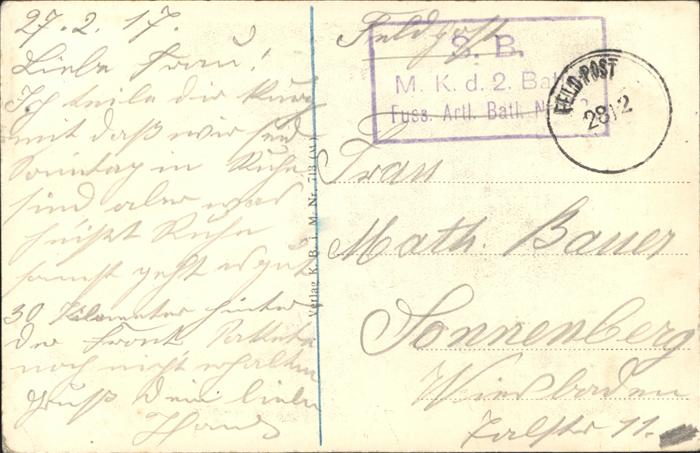 27.2.17.
Liebe Frau!
Ich teile dir kurz
mit daß wir seid
Sonntag in Ruhe
sind aber was
heißt Ruhe
sonst geht es gut
30 Kilometer hinter
der Front Packete
noch nicht erhalten
Gruß Dein lieber
Hans
Verlag K. B. i. M. Nr.
Feldpost
S. B.
M. K. d. 2. Batt.
Fuss. Artl. Batl. N
FELD-POST
28 2
Frau
Math. Bauer
Sonnenberg
Wiesbaden
Talstr 11.